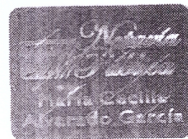 La Notaria
Pública
María Cecilia
Alvarado García